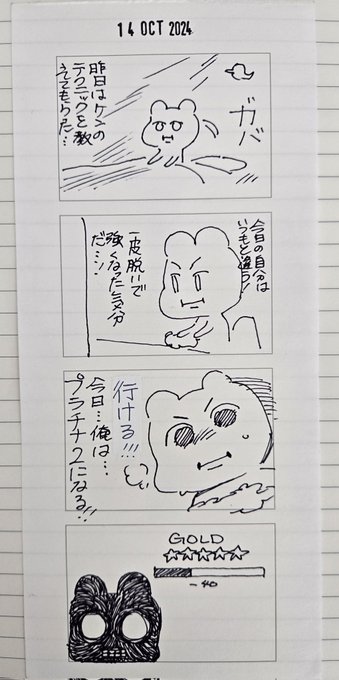 14 OCT 2024
昨日はケンの
テクニックを教
えてもらった…
ガバ
今日の自分は
いつもと違う!
一皮脱いで
強くなった気分
だ…!
行ける!!!
今日…俺は…
プラチナ2になる!!
GOLD
-40